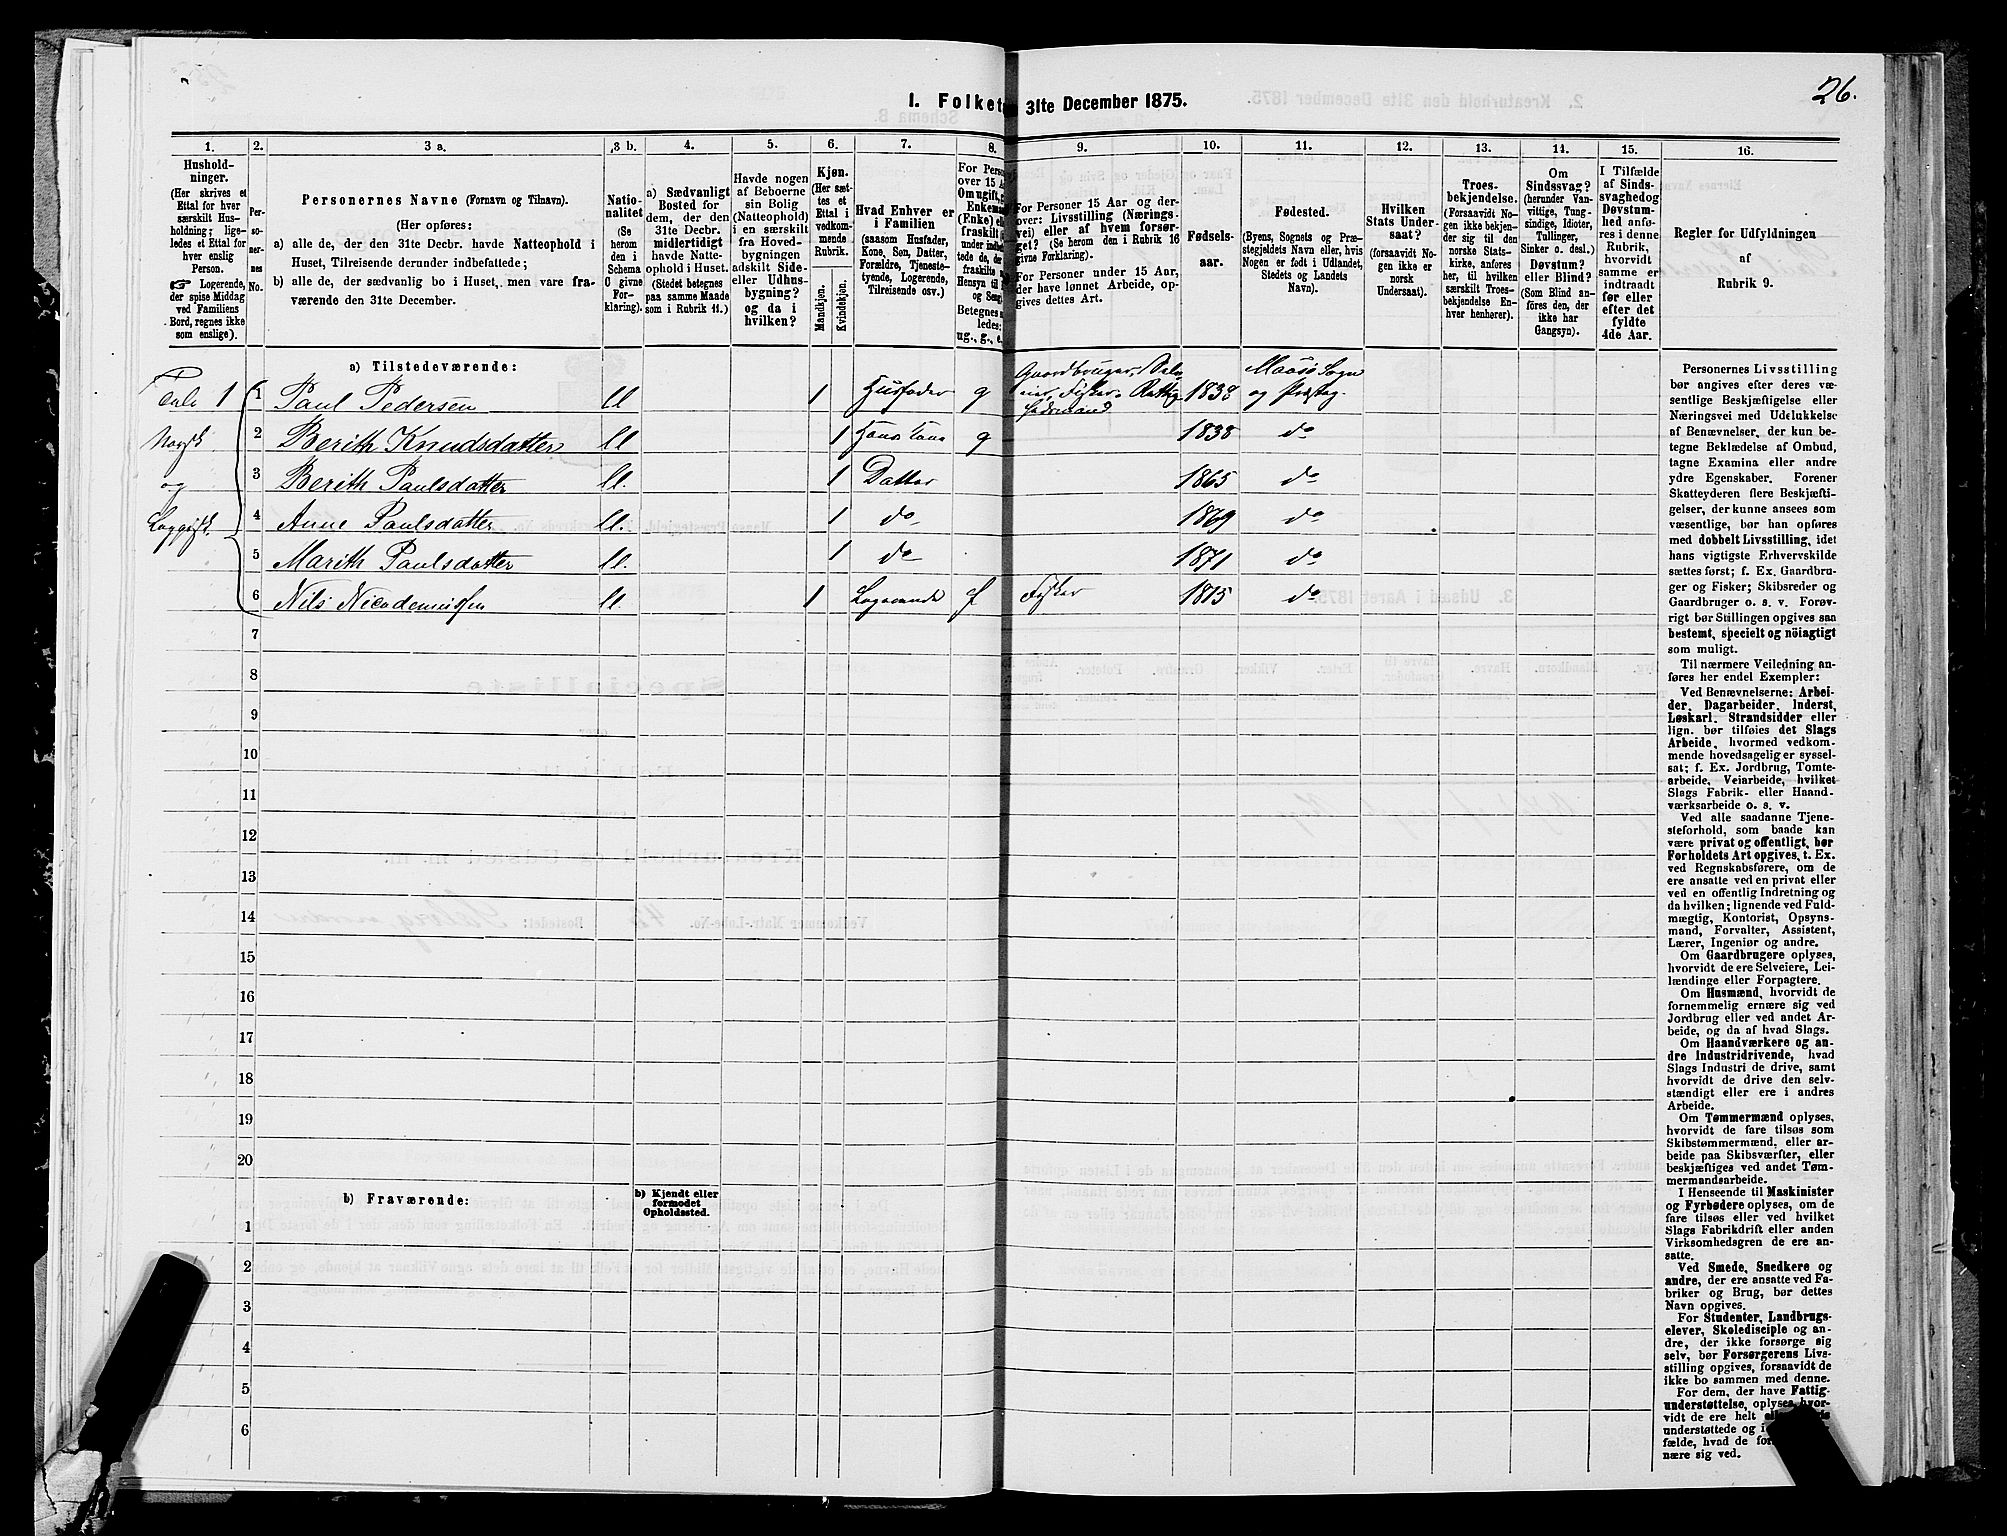 26.
1. Folketæ 31te December 1875.
1. 2. 3 a. 3 b. 4. 5. 6. 7. 8. 9. 10. 11. 12. 13. 14. 15. 16.
Hushold-
ninger.
(Her skrives et
Ettal for hver
særskilt Hus-
holdning; lige-
ledes et Ettal for
hver enslig
Person.
Logerende,
der spise Middag
ved Familiens
Bord, regnes ikke
som enslige).
Per-
so-
ner-
nes
No.
Personernes Navne (Fornavn og Tilnavn).
(Her opføres:
a) alle de, der den 31te Decbr. havde Natteophold i
Huset, Tilreisende derunder indbefattede;
b) alle de, der sædvanlig bo i Huset, men vare fra-
værende den 31te December.
Natio-
nalitet
(Se
herom
den i
Schema
C givne
For-
klaring).
a) Sædvanligt
Bosted for
dem, der den
31te Decbr.
midlertidigt
havde Natte-
ophold i Huset.
(Stedet betegnes
paa samme Maade
som i Rubrik 11.)
Havde nogen
af Beboerne
sin Bolig
(Natteophold)
i en særskilt
fra Hoved-
bygningen
adskilt Side-
eller Udhus-
bygning?
og da i
hvilken?
Kjøn.
(Her sæt-
tes et
Ettal i
vedkom-
mende
Rubrik.
Mandkjøn.
Kvindekjøn.
Hvad Enhver er
i Familien
(saasom Husfader,
Kone, Søn, Datter,
Forældre, Tjeneste-
tyende, Logerende,
Tilreisende osv.)
For Perso
over 15 A
Om ugift, g
Enkema
(Enke) el
fraskilt
under indbe
tede de, der
fraskilte
Hensyn til
og Seng.
Betegnes
ledes:
ug., g., e.
For Personer 15 Aar og der-
over: Livsstilling (Nærings-
vei) eller af hvem forsør-
get? (Se herom den i Rubrik 16
givne Forklaring).
For Personer under 15 Aar,
der have lønnet Arbeide, op-
gives dettes Art.
Fødsels-
aar.
Fødested.
(Byens, Sognets og Præ-
stegjeldets Navn eller, hvis
Nogen er født i Udlandet,
Stedets og Landets
Navn).
Hvilken
Stats Under-
saat?
(forsaavidt No-
gen ikke er
norsk
Undersaat).
Troes-
bekjendelse.
(Forsaavidt No-
gen ikke bekjen-
der sig til den
norske Stats-
kirke, anføres
her, til hvilken
særskilt Troes-
bekjendelse En-
hver henhører).
Om
Sindssvag?
(herunder Van-
vittige, Tung-
sindige, Idioter,
Tullinger,
Sinker o. desl.)
Døvstum?
eller Blind?
(Som Blind an-
føres den, der
ikke har
Gangsyn).
I Tilfælde
af Sinds-
svaghedog
Døvstum-
hed anfø-
res i denne
Rubrik,
hvorvidt
samme er
indtraadt
før eller
efter det
fyldte
4de Aar.
Regler for Udfyldningen
af
Rubrik 9.
a) Tilstedeværende:
Tale 1 1 Paul Pedersen ll 1 Husfader g Gaardbruger, Selv
eier, Fisker 1838 Maasø Sogn
og Præstg.
Norsk 2 Berith Knudsdatter ll 1 Hans Kone g 1838 do
og 3 Berith Paulsdatter ll. 1 Datter 1865 do
Lappisk. 4 Anne Paulsdatter ll. 1 do 1869 do
5 Marith Paulsdatter ll. 1 do 1871 do
6 Nils Nicodemussen ll. 1 Logerende Fisker 1815 do
7
8
9
10
11
12
13
14
15
16
17
18
19
20
b) Fraværende:
b) Kjendt eller
formodet
Opholdssted.
1
2
3
4
5
6
Personernes Livsstilling
bør angives efter deres væ-
sentlige Beskjæftigelse eller
Næringsvei med Udelukkelse
af Benævnelser, der kun be-
tegne Beklædelse af Ombud,
tagne Examina eller andre
ydre Egenskaber. Forener
Skatteyderen flere Beskjæfti-
gelser, der kunne ansees som
væsentlige, bør han opføres
med dobbelt Livsstilling, idet
hans vigtigste Erhvervskilde
sættes først; f. Ex. Gaardbru-
ger og Fisker; Skibsreder og
Gaardbruger o. s. v. Forøv-
rigt bør Stillingen opgives saa
bestemt, specielt og nöiagtigt
som muligt.
Til nærmere Veiledning an-
føres her endel Exempler:
Ved Benævnelserne: Arbei-
der, Dagarbeider, Inderst,
Løskarl, Strandsidder eller
lign. bør tilføies det Slags
Arbeide, hvormed vedkom-
mende hovedsagelig er syssel-
sat; f. Ex. Jordbrug, Tomte-
arbeide, Veiarbeide, hvilket
Slags Fabrik- eller Haand-
værksarbeide o. s. v.
Ved alle saadanne Tjene-
steforhold, som baade kan
være privat og offentligt, bør
Forholdets Art opgives, t. Ex.
ved Regnskabsførere, om de
ere ansatte ved en privat eller
ved en offentlig Indretning og
da hvilken; lignende ved Fuld-
mægtig, Kontorist, Opsyns-
mand, Forvalter, Assistent,
Lærer, Ingeniør og andre.
Om Gaardbrugere oplyses,
hvorvidt de ere Selveiere, Lei-
lændinge eller Forpagtere.
Om Husmænd, hvorvidt de
fornemmelig ernære sig ved
Jordbrug eller ved andet Ar-
beide, og da af hvad Slags.
Om Haandværkere og an-
dre Industridrivende, hvad
Slags Industri de drive, samt
hvorvidt de drive den selv-
stændigt eller ere i andres
Arbeide.
Om Tømmermænd oplyses,
hvorvidt de fare tilsøs som
Skibstømmermænd, eller ar-
beide paa Skibsværfter, eller
beskjæftiges ved andet Tøm-
mermandsarbeide.
I Henseende til Maskinister
og Fyrbødere oplyses, om de
fare tilsøs eller ved hvilket
Slags Fabrikdrift eller anden
Virksomhedsgren de ere an-
satte.
Ved Smede, Snedkere og
andre, der ere ansatte ved Fa-
briker og Brug, bør dettes
Navn opgives.
For Studenter, Landbrugs-
elever, Skoledisciple og an-
dre, der ikke forsørge sig
selv, bør Forsørgerens Livs-
stilling opgives, forsaavidt de
ikke bo sammen med denne.
For dem, der have Fattig-
understøttelse, oplyses, hvor-
vidt de ere helt
understøttede og i
fælde, hvad de for
nære sig ved.